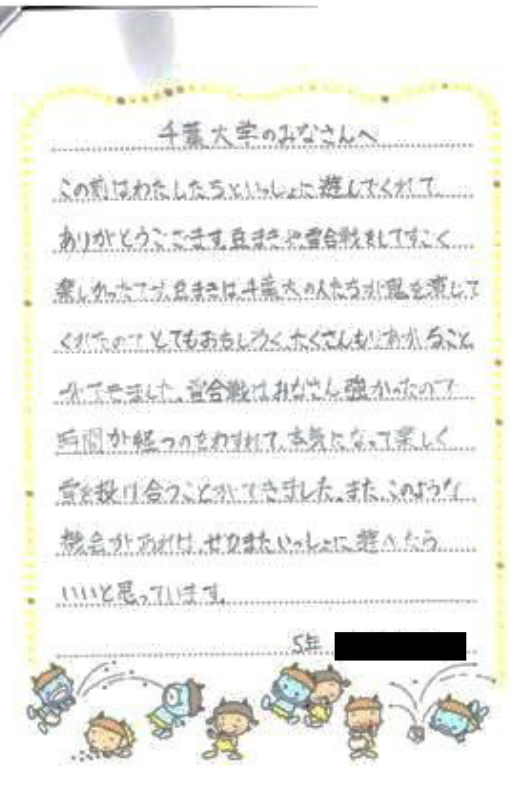 千葉大学のみなさんへ
この前はわたしたちといっしょに遊んでくれて、
ありがとうございます。豆まきや雪合戦をしてすごく
楽しかったです。豆まきは、千葉大の人たちが鬼を演じて
くれたのでとてもおもしろく、たくさんもりあがること
ができました。雪合戦はみなさん強かったので
時間が経つのをわすれて、本気になって楽しく
雪を投げ合うことができました。また、このような
機会があれば、ぜひまたいっしょに遊べたら
いいと思っています。
5年